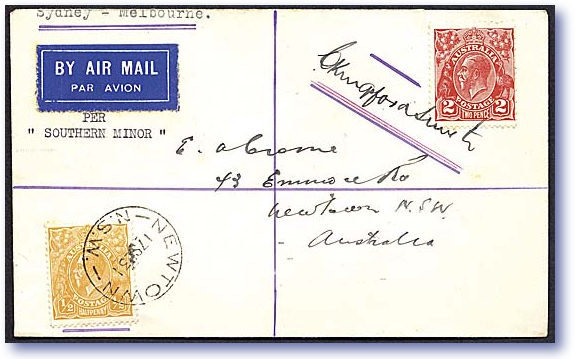 Sydney - Melbourne.
BY AIR MAIL
PAR AVION
PER
" SOUTHERN MINOR "
CKingsford Smith
AUSTRALIA
POSTAGE
2 TWO PENCE 2
E. A. Crome
43 Enmore Rd
Newtown N.S.W.
- Australia
NEWTOWN - N.S.W. -
AUSTRALIA
POSTAGE
½ HALFPENNY ½